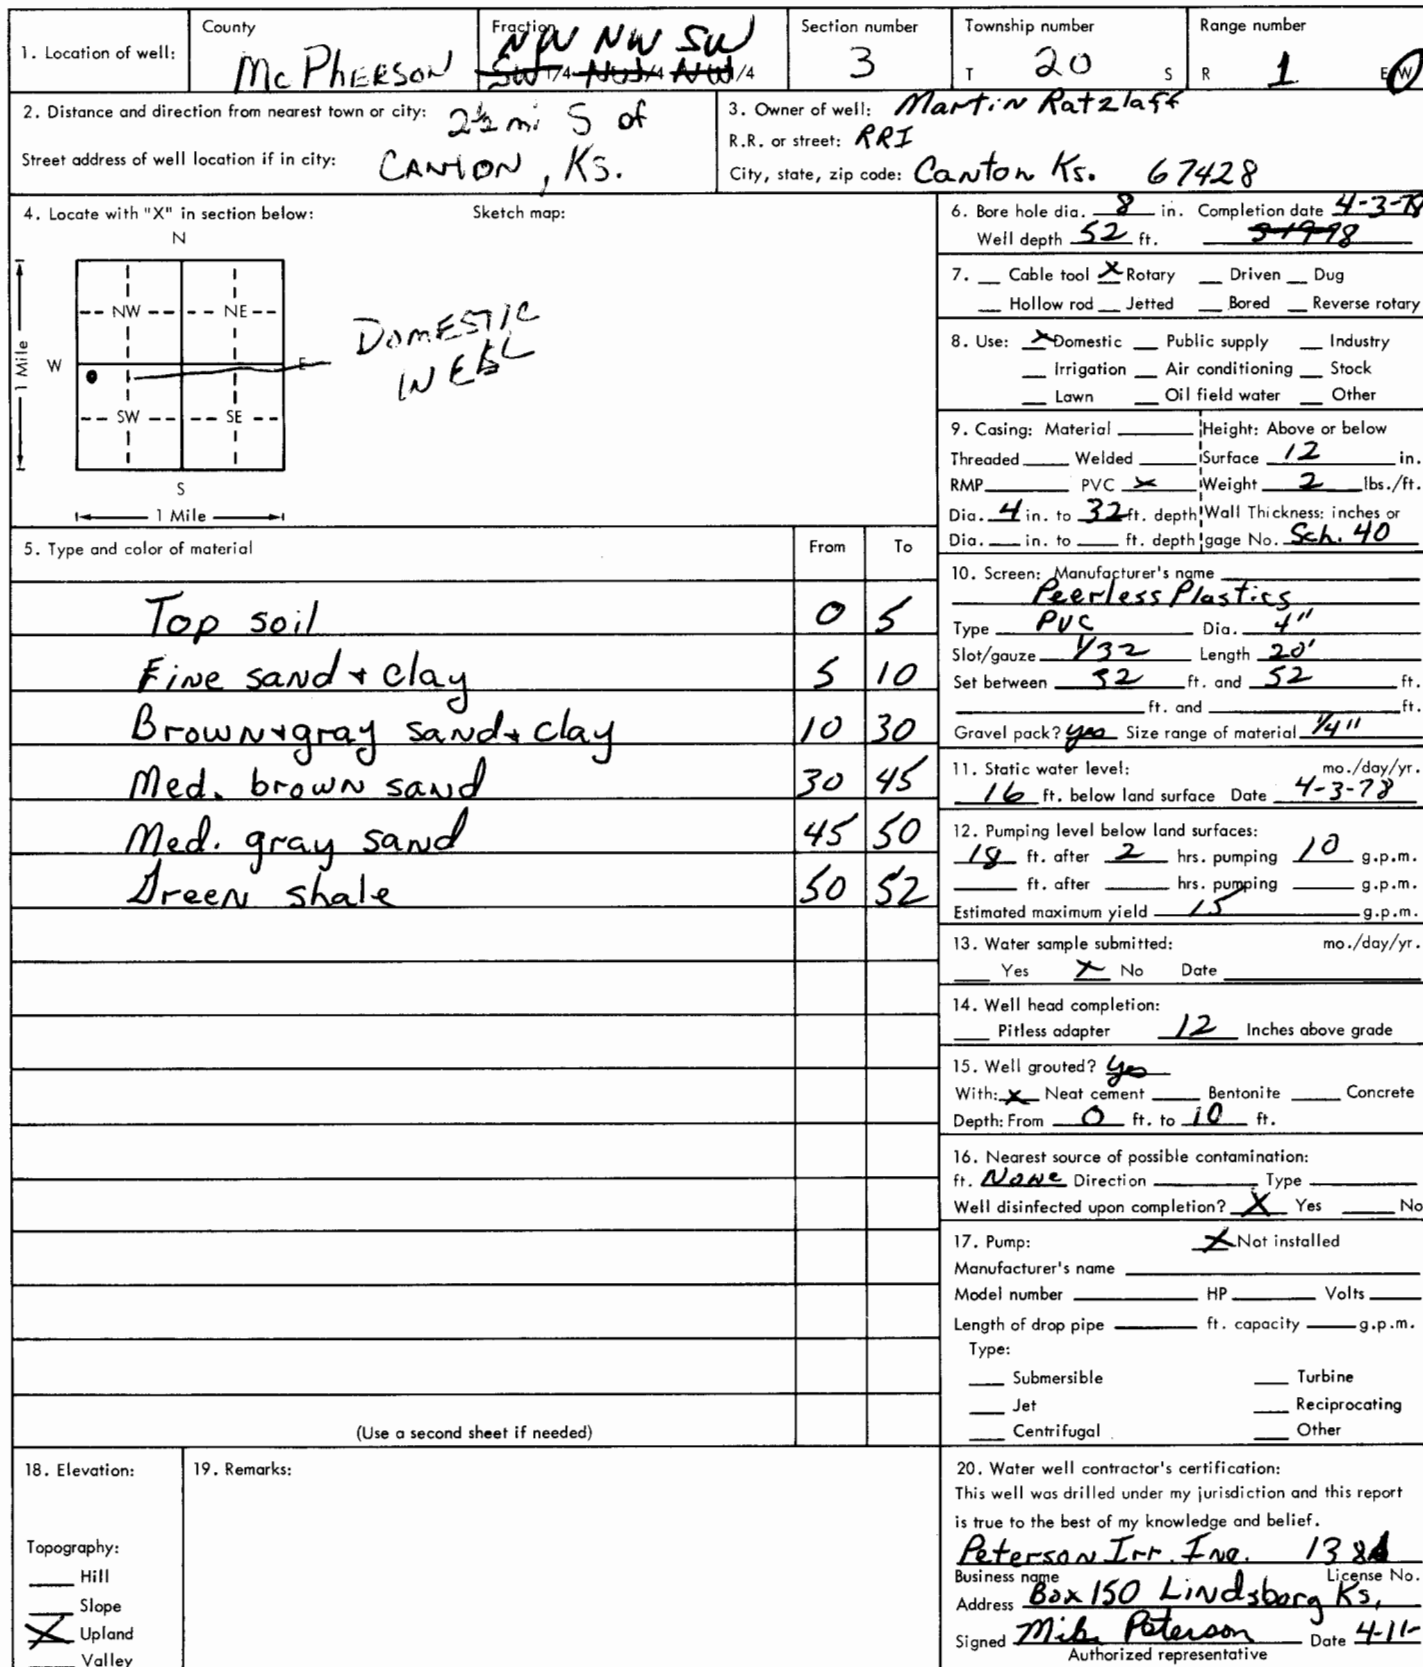 1. Location of well:
County
McPherson
Fraction
NW NW SW
SW 1/4 NW 1/4 NW 1/4
Section number
3
Township number
T 20 S
Range number
R 1 E W
2. Distance and direction from nearest town or city: 2½ mi S of
Street address of well location if in city: CANTON, KS.
3. Owner of well: Martin Ratzlaff
R.R. or street: RR1
City, state, zip code: Canton Ks. 67428
4. Locate with "X" in section below:
Sketch map:
N
NW NE
W E
SW SE
S
1 Mile
1 Mile
DOMESTIC
WELL
5. Type and color of material From To
Top soil 0 5
Fine sand + clay 5 10
Brown+gray sand+clay 10 30
Med. brown sand 30 45
Med. gray sand 45 50
Green shale 50 52
(Use a second sheet if needed)
6. Bore hole dia. 8 in. Completion date 4-3-78
Well depth 52 ft.
7. Cable tool X Rotary Driven Dug
Hollow rod Jetted Bored Reverse rotary
8. Use: X Domestic Public supply Industry
Irrigation Air conditioning Stock
Lawn Oil field water Other
9. Casing: Material Height: Above or below
Threaded Welded Surface 12 in.
RMP PVC X Weight 2 lbs./ft.
Dia. 4 in. to 32 ft. depth Wall Thickness: inches or
Dia. in. to ft. depth gage No. Sch. 40
10. Screen: Manufacturer's name
Peerless Plastics
Type PVC Dia. 4"
Slot/gauze 1/32 Length 20'
Set between 32 ft. and 52 ft.
ft. and ft.
Gravel pack? yes Size range of material 1/4"
11. Static water level: mo./day/yr.
16 ft. below land surface Date 4-3-78
12. Pumping level below land surfaces:
18 ft. after 2 hrs. pumping 10 g.p.m.
ft. after hrs. pumping g.p.m.
Estimated maximum yield 15 g.p.m.
13. Water sample submitted: mo./day/yr.
Yes X No Date
14. Well head completion:
Pitless adapter 12 Inches above grade
15. Well grouted? yes
With: X Neat cement Bentonite Concrete
Depth: From 0 ft. to 10 ft.
16. Nearest source of possible contamination:
ft. None Direction Type
Well disinfected upon completion? X Yes No
17. Pump: X Not installed
Manufacturer's name
Model number HP Volts
Length of drop pipe ft. capacity g.p.m.
Type:
Submersible Turbine
Jet Reciprocating
Centrifugal Other
18. Elevation:
Topography:
Hill
Slope
X Upland
Valley
19. Remarks:
20. Water well contractor's certification:
This well was drilled under my jurisdiction and this report
is true to the best of my knowledge and belief.
Peterson Irr. Inc. 138
Business name License No.
Address Box 150 Lindsborg Ks,
Signed Mike Peterson Date 4-11-
Authorized representative